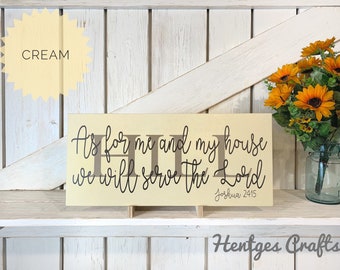 CREAM
HILL
As for me and my house
we will serve the Lord
Joshua 24:15
Hentges Crafts